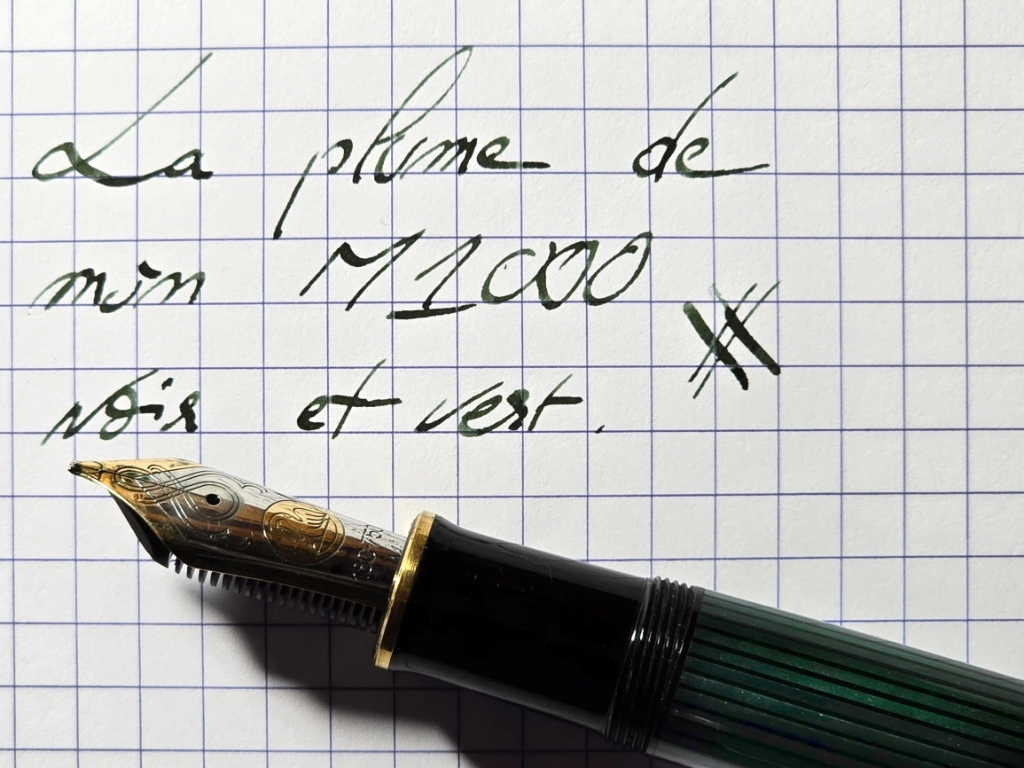 La plume de
mon M1000
noir et vert.